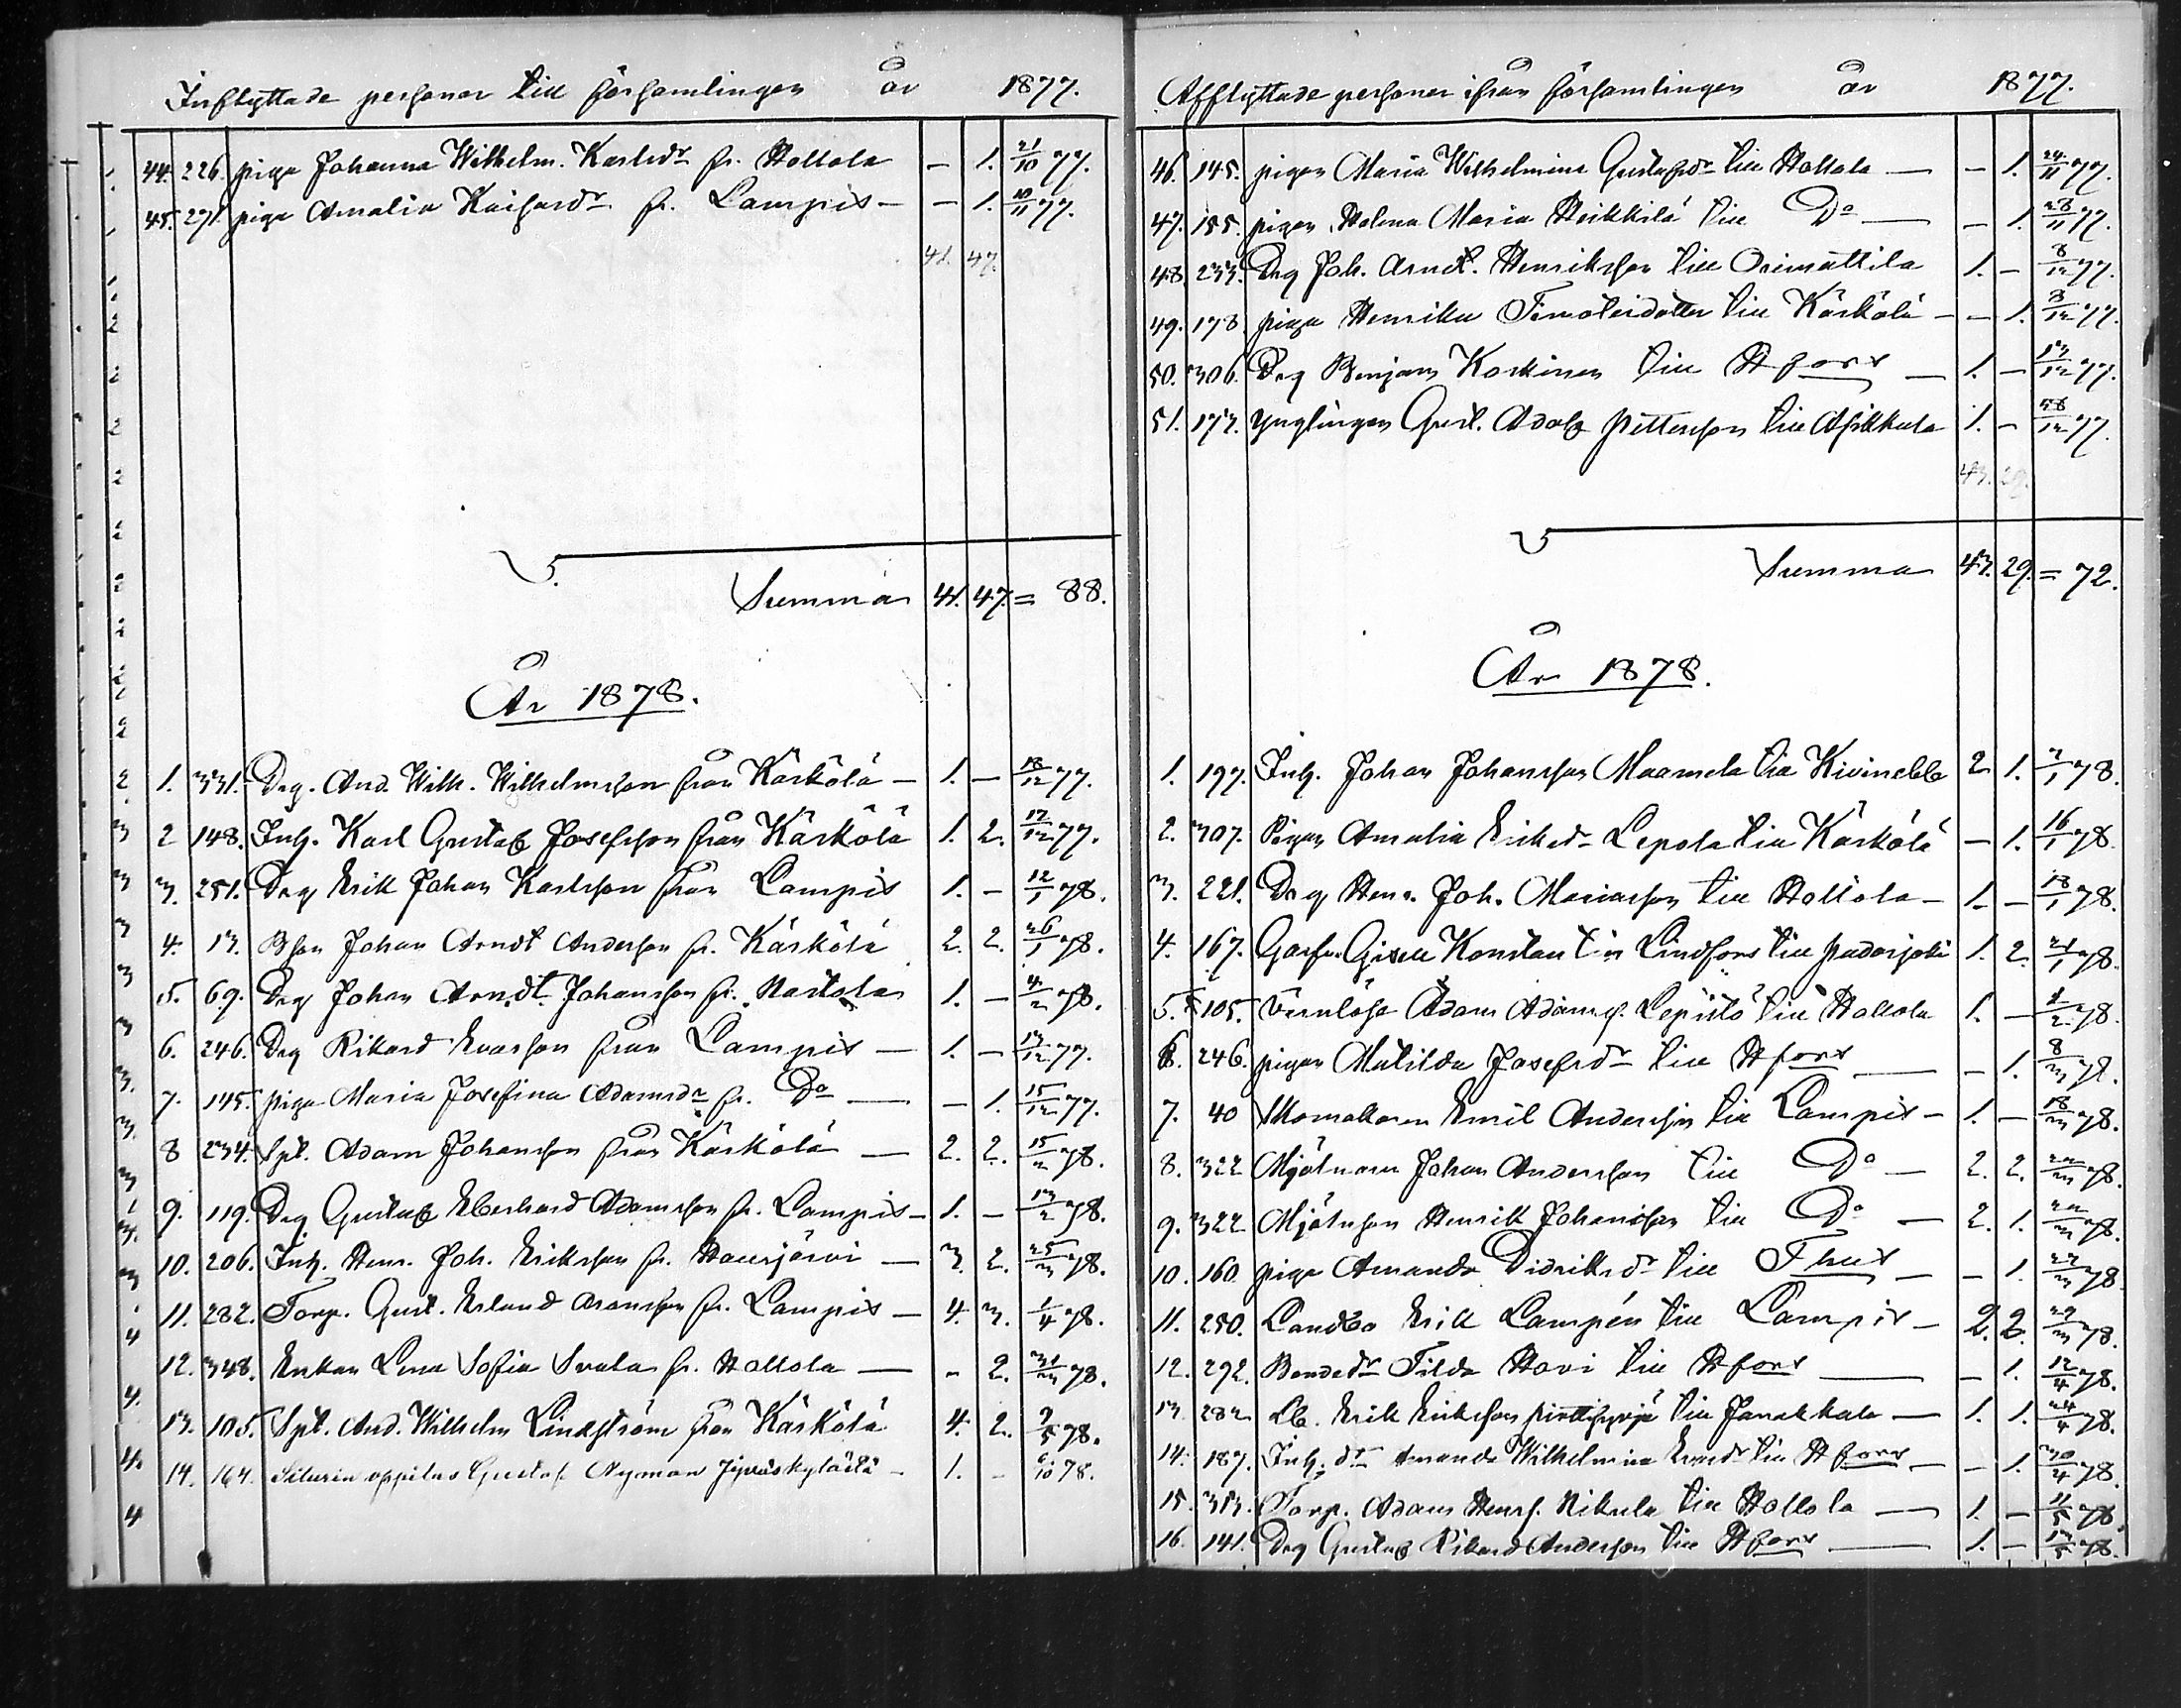 Inflyttade personer till församlingen år 1877.
44. 226. piga Johanna Wilhelm. Karlsdr fr. Hollola — 1. 21/10 77.
45. 271. piga Amalia Kaisasdr fr. Lampis — — 1. 10/11 77.
41. 47.
Summa 41. 47. = 88.
År 1878.
1. 331. Drg. And. Wilh. Wilhelmsson från Kärkölä — 1. — 18/12 77.
2 148. Inh. Karl Gustaf Josefsson från Kärkölä 1. 2. 12/12 77.
3. 251. Drg Erik Johan Karlsson från Lampis 1. — 12/1 78.
4. 13. Bson Johan Arndt Andersson fr. Kärkölä 2. 2. 26/1 78.
5. 69. Drg Johan Arndt Johansson fr. Nastola 1. — 4/2 78.
6. 246. Drg Rikard Evasson från Lampis — 1. — 13/12 77.
7. 145. piga Maria Josefina Adamsdr fr. Do — — 1. 15/12 77.
8 234. Spt. Adam Johansson från Kärkölä — 2. 2. 15/2 78.
9. 119. Drg Gustaf Eberhard Adamsson fr. Lampis — 1. — 13/2 78.
10. 206. Inh. Henr. Joh. Eriksson fr. Hausjärvi — 3. 2. 25/3 78.
11. 282. Torp. Gust. Erland Aronsson fr. Lampis — 4. 3. 1/4 78.
12. 348. Enkan Lena Sofia Svala fr. Hollola — - 2. 31/3 78.
13. 105. Spt. And. Wilhelm Lindström från Kärkölä 4. 2. 9/5 78.
14. 164. oppilas Gustaf Nyman Jyväskylästä — 1. - 6/10 78.
Afflyttade personer ifrån församlingen år 1877.
46. 145. pigan Maria Wilhelmina Gustafsdr till Hollola — — 1. 24/11 77.
47. 155. pigan Helena Maria Heikkilä till Do — — 1. 28/11 77.
48. 233. Drg Joh. Arndt. Henriksson till Orimattila 1. — 8/12 77.
49. 178 piga Henrika Timoteidotter till Kärkölä — — 1. 8/12 77.
50. 306. Drg Benjam Koskinen till Hfors — 1. — 13/12 77.
51. 173. Ynglingen Gust. Adolf Pettersson till Asikkala 1. — 28/12 77.
43. 29.
Summa 43. 29. = 72.
År 1878.
1. 197. Inh. Johan Johansson Maamela till Kivinebb 2 1. 3/1 78.
2. 307. Pigan Amalia Eriksdr Lepola till Kärkölä — 1. 16/1 78.
3. 221. Drg Henr. Joh. Mariasson till Hollola — 1. — 18/1 78.
4. 167. Konstantin Lindfors till Padasjoki 1. 2. 21/1 78.
5. 105. Värnlöse Adam Adamss. Lepistö till Hollola 1. — 1/2 78.
6. 246. pigan Matilda Josefsdr till Hfors — — 1. 8/3 78.
7. 40 Skomakaren Emil Andersson till Lampis — 1. — 18/3 78.
8. 322 Mjölnaren Johan Andersson till Do — 2. 2. 22/3 78.
9. 322 Mjölnson Henrik Johansson till Do — 2. 1. 22/3 78.
10. 160. piga Amanda Didriksdr till Thus — — 1. 27/3 78
11. 250. Landbo Erik Lampén till Lampis — 2. 2. 29/3 78.
12. 292. Bondedr Tilda Hovi till Hfors — — 1. 12/4 78.
13 282 Lb. Erik Eriksson till Janakkala — 1. 1. 24/4 78.
14. 187. Inh. dr Amanda Wilhelmina till Hfors — — 1. 30/4 78.
15. 313. Torp. Adam Henrs. Nikula till Hollola — 1. — 11/5 78.
16. 141. Drg Gustaf Rikard Andersson till Hfors — 1. — 13/5 78.